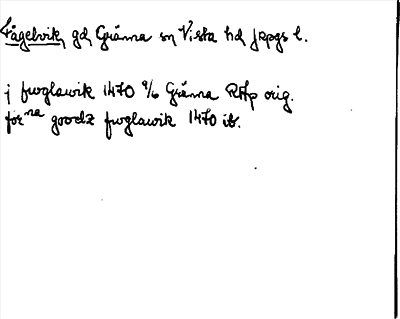 Fågelvik, gd, Gränna sn Vista hd Jkpgs l.
j fwglawik 1470 9/6 Gränna RAp orig.
för^na goodz fwglawik 1470 ib.